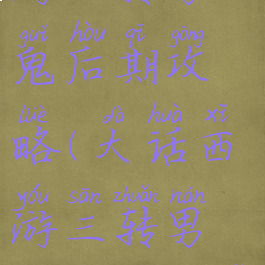 guǐ hòu qī gōng
鬼后期攻
lüè dà huà xī
略(大话西
yóu sān zhuǎn nán
游三转男